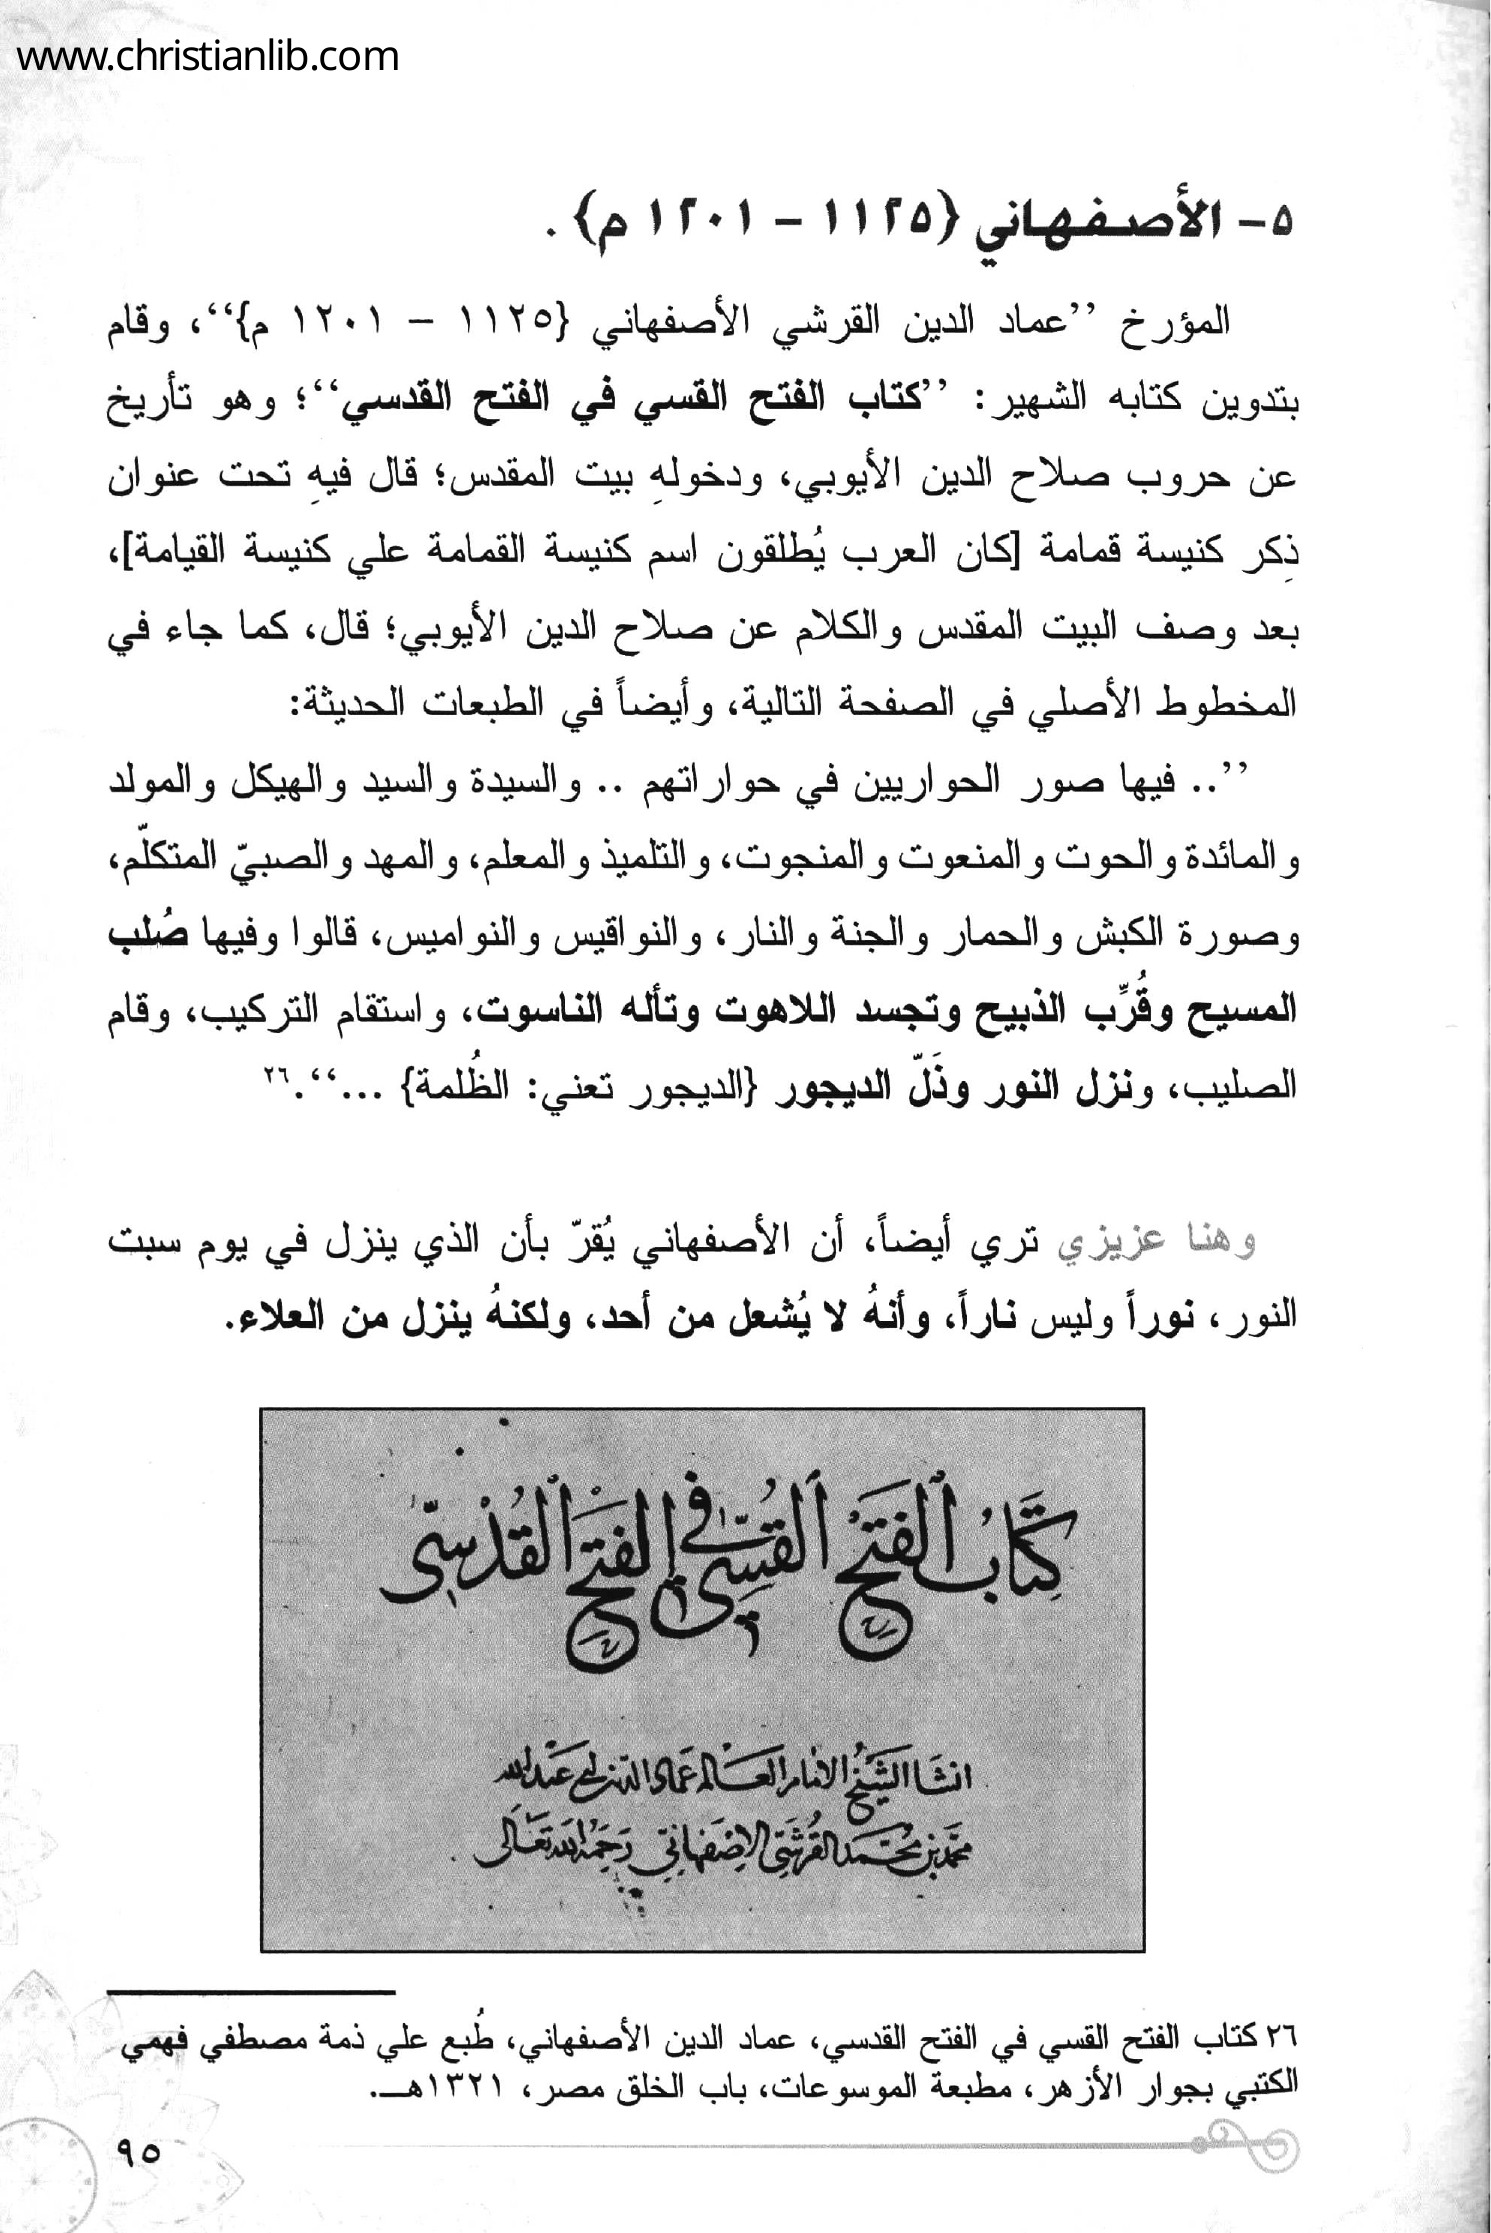 www.christianlib.com
٥- الأصفهاني {١١٢٥ – ١٢٠١ م} .
المؤرخ ’’عماد الدين القرشي الأصفهاني {١١٢٥ – ١٢٠١ م}‘‘، وقام
بتدوين كتابه الشهير: ’’كتاب الفتح القسي في الفتح القدسي‘‘؛ وهو تأريخ
عن حروب صلاح الدين الأيوبي، ودخولهِ بيت المقدس؛ قال فيهِ تحت عنوان
ذِكر كنيسة قمامة [كان العرب يُطلقون اسم كنيسة القمامة علي كنيسة القيامة]،
بعد وصف البيت المقدس والكلام عن صلاح الدين الأيوبي؛ قال، كما جاء في
المخطوط الأصلي في الصفحة التالية، وأيضاً في الطبعات الحديثة:
’’.. فيها صور الحواريين في حواراتهم .. والسيدة والسيد والهيكل والمولد
والمائدة والحوت والمنعوت والمنجوت، والتلميذ والمعلم، والمهد والصبيّ المتكلّم،
وصورة الكبش والحمار والجنة والنار، والنواقيس والنواميس، قالوا وفيها صُلب
المسيح وقُرِّب الذبيح وتجسد اللاهوت وتأله الناسوت، واستقام التركيب، وقام
الصليب، ونزل النور وذَلّ الديجور {الديجور تعني: الظُلمة} ...‘‘.٢٦
وهنا عزيزي تري أيضاً، أن الأصفهاني يُقرّ بأن الذي ينزل في يوم سبت
النور، نوراً وليس ناراً، وأنهُ لا يُشعل من أحد، ولكنهُ ينزل من العلاء.
كتاب الفتح القسي في الفتح القدسي
انشا الشيخ الامام العالم عماد الدين ابي عبد الله
محمد بن محمد القرشي الاصفهاني رحمه الله تعالى
٢٦ كتاب الفتح القسي في الفتح القدسي، عماد الدين الأصفهاني، طُبع علي ذمة مصطفي فهمي
الكتبي بجوار الأزهر، مطبعة الموسوعات، باب الخلق مصر، ١٣٢١هـ.
٩٥